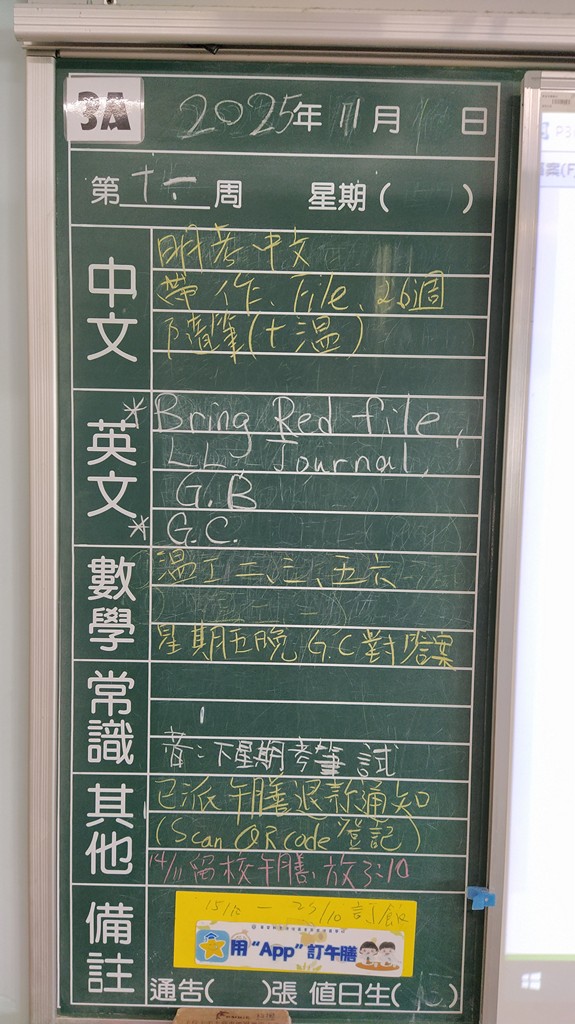 3A 2025年 11月 日
第十一周 星期( )
中文
明考中文
帶作、File、26週
隨筆(十溫)
英文
*Bring Red file,
LL, Journal,
G.B
*G.C.
數學
溫工二、三、五六
星期五晚 G.C 對答案
常識
下星期考筆試
其他
已派午膳退款通知
(Scan QR code 登記)
14/11 留校午膳, 放3:10
備註
15/10 - 23/10 訂飯
用“App”訂午膳
通告( )張 值日生( )